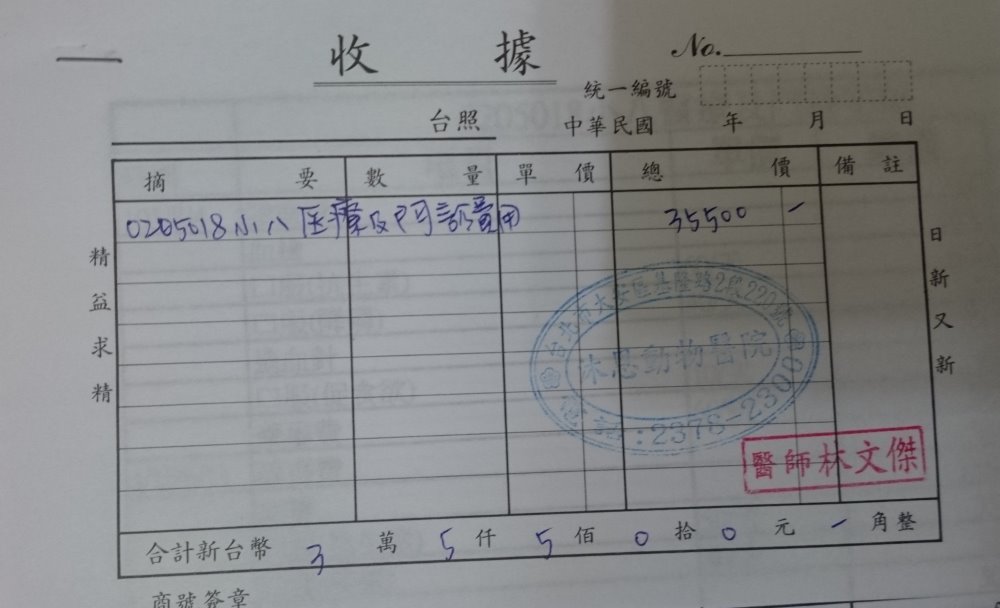 收 據
No.
統一編號
台照 中華民國 年 月 日
摘 要 數 量 單 價 總 價 備 註
0205018小八 医療及門診費用 35500 -
精益求精
日新又新
台北市大安區基隆路2段220號
沐思動物醫院
電話:2378-2300
醫師林文傑
合計新台幣 3 萬 5 仟 5 佰 0 拾 0 元 - 角整
商號簽章